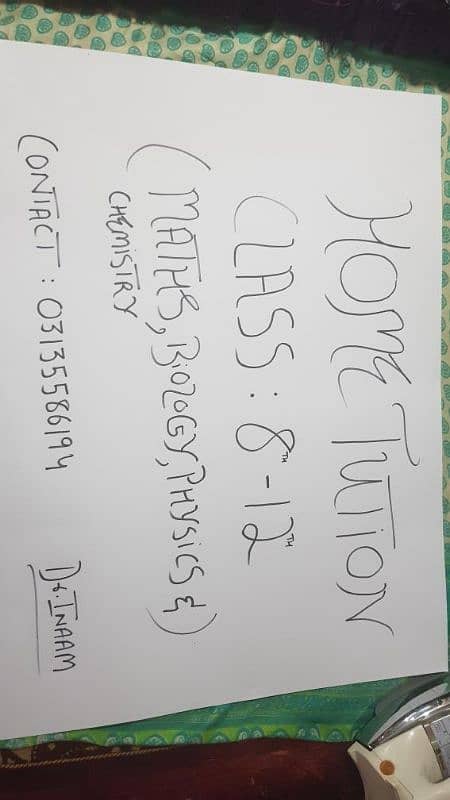 HOME TUTION
CLASS : 8TH - 12TH
(MATHS, BIOLOGY, PHYSICS &)
CHEMISTRY
CONTACT : 03135586194
Dr. INAAM